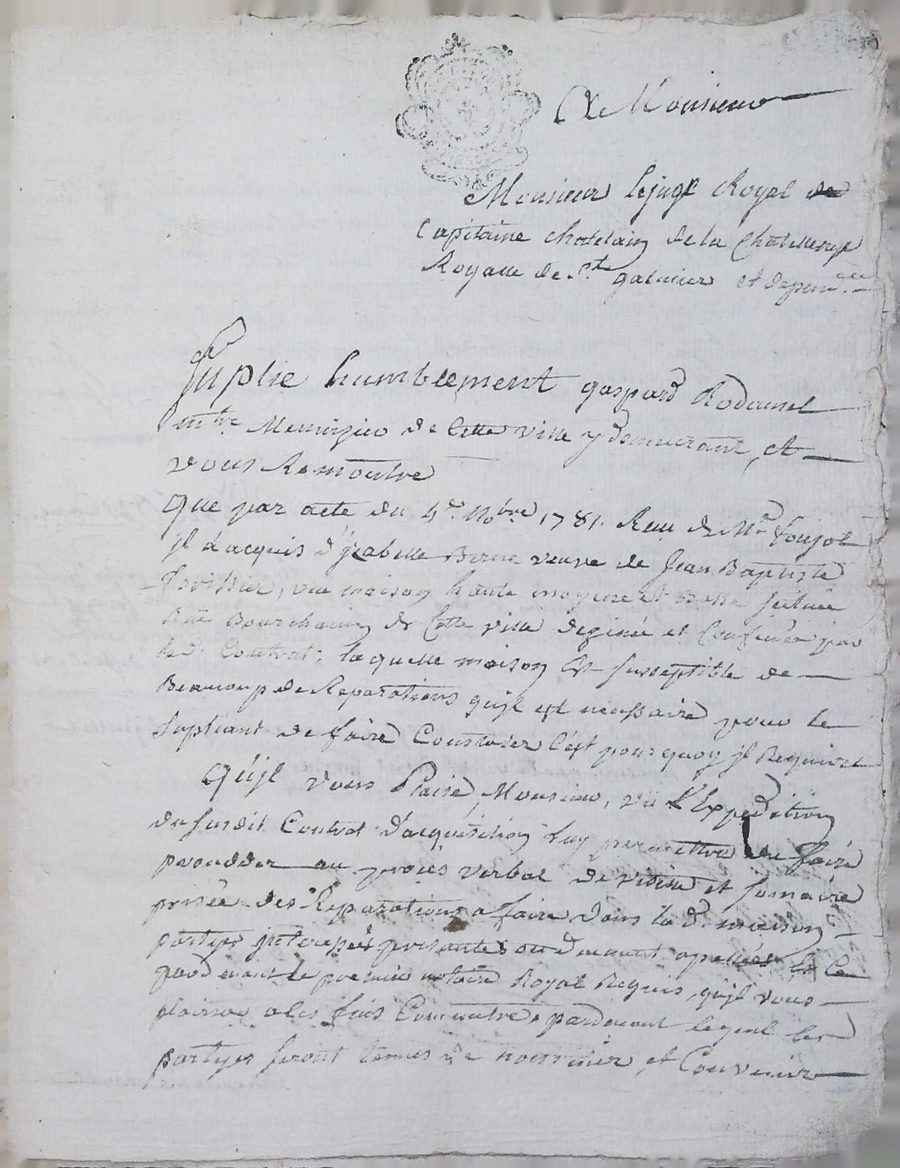 De Monsieur
Monsieur le juge Royal de
Capitaine chatelain de la Chatellenye
Royalle de St galmier et depend.ces
Suplie humblement gaspard
mtre Menuizier de Cette ville y demeurant, et
vous Remontre
que par acte du 4e. Nobre 1781. Reçu de Me
jl a acquis d'jzabelle veuve de Jean Baptiste
une maison haute moyene et Basse scituée
Rüe de Cette ville dezinée et Confinée par
le d. Contrat; laquelle maison Est susceptible de
Beaucoup de Reparations qu'jl est nécessaire pour le
Supliant de faire Constater C'est pourquoy jl Requiere
Qu'jl vous Plaise, Monsieur, vü l'Expedition
du susdit Contrat d'acquisition luy permettre de faire
proceder au procès verbal de vizitte et somaire
prisée des Reparations a faire dans la d. maison
partyes jnteressées presantes ou duement apellées Et Ce
pardevant le premier notaire Royal Requis, qu'jl vous
plairra a Ces fins Commettre, pardevant lequel les
partyes seront tenues de nommer et Convenir